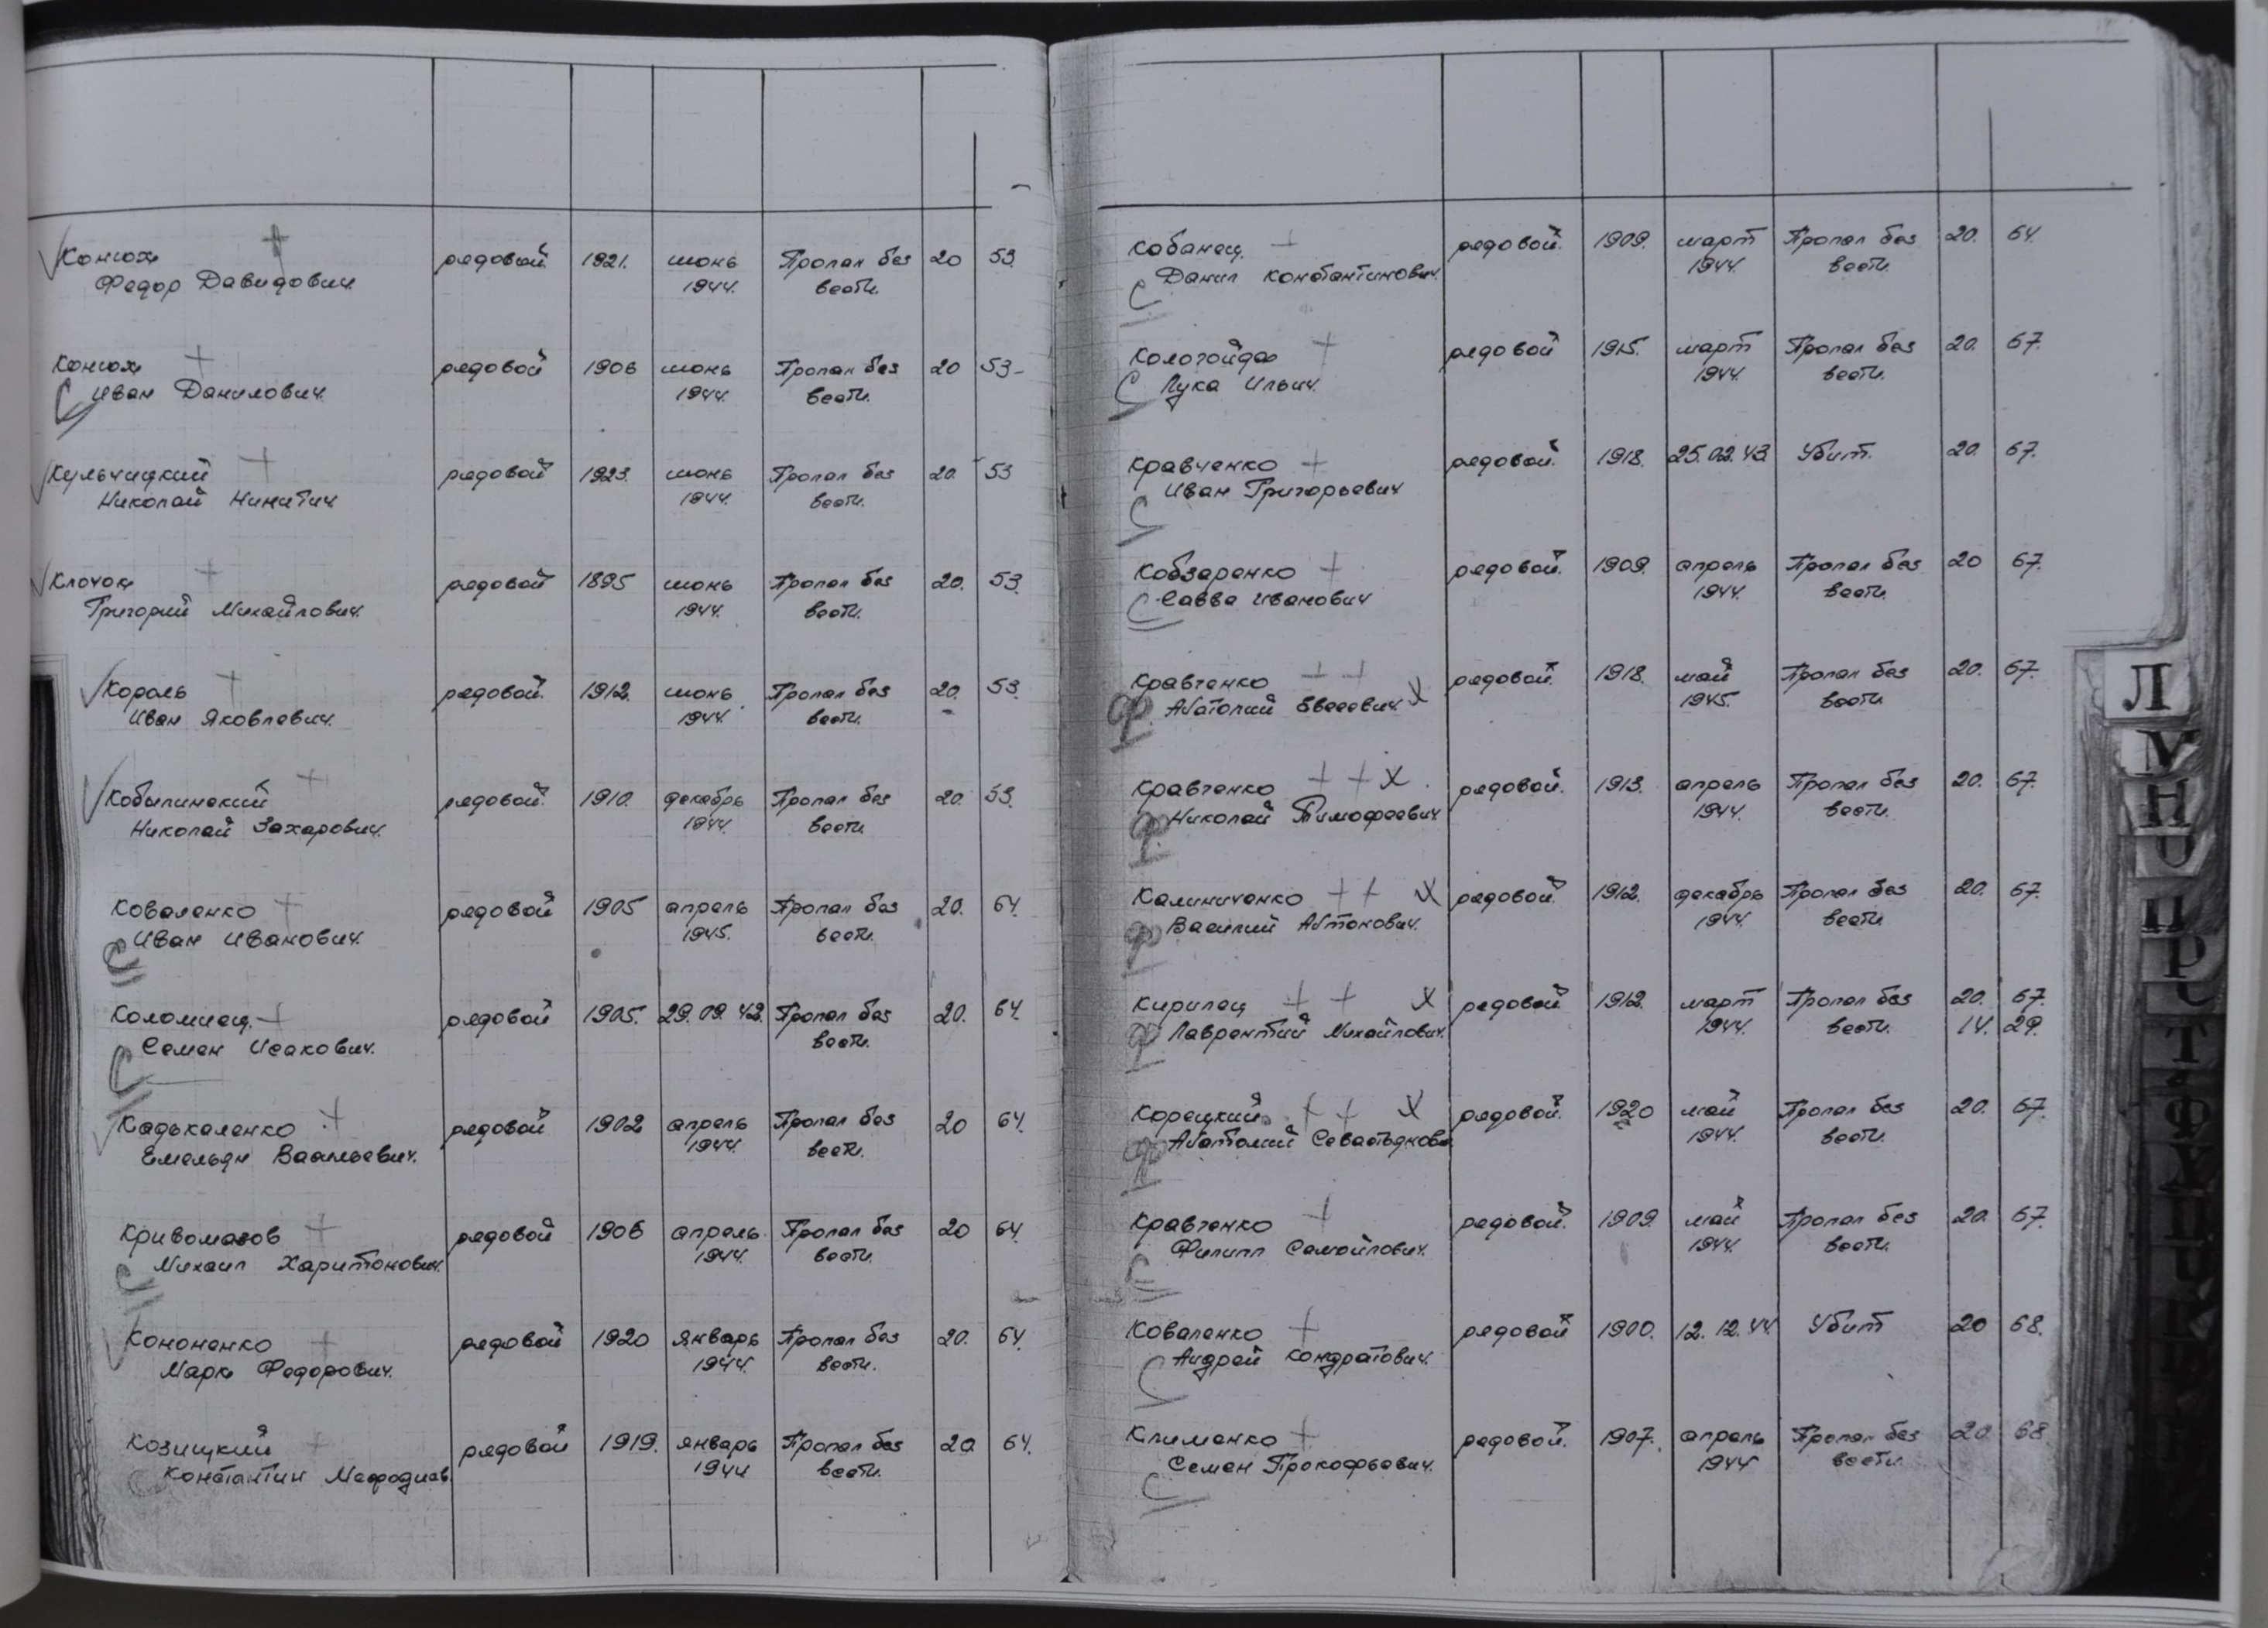 Конюх рядовой 1921. июнь Пропал без 20 53.
Федор Давидович 1944. вести.
Конюх рядовой 1906 июнь Пропал без 20 53
Иван Данилович 1944. вести.
Кульчицкий рядовой 1923. июнь Пропал без 20. 53
Николай Никитич 1944. вести.
Клочок рядовой 1895 июнь Пропал без 20. 53.
Григорий Михайлович. 1944. вести.
Король рядовой. 1912. июнь Пропал без 20. 53.
Иван Яковлевич. 1944. вести.
Кобылинский рядовой. 1910. декабрь Пропал без 20. 53.
Николай Захарович. 1944. вести
Коваленко рядовой 1905 апрель Пропал без 20. 64.
Иван Иванович. 1945. вести.
Коломиец. рядовой 1905. Пропал без 20. 64.
Семен Исакович. вести.
Кадькаленко рядовой 1902 апрель Пропал без 20 64.
Емельян Васильевич. 1944. вести.
Кривомазов рядовой 1906 апрель Пропал без 20 64.
Михаил Харитонович. 1944. вести.
Кононенко рядовой 1920 январь Пропал без 20. 64.
Марк Федорович. 1944. вести.
Козицкий рядовой 1919. январь Пропал без 20 64.
Константин Мефодиев. 1944 вести.
Кобанец. рядовой. 1909. март Пропал без 20. 64.
Данил Константинович. 1944. вести.
Кологойда рядовой 1915. март Пропал без 20. 67.
Лука Ильич. 1944. вести.
Кравченко рядовой. 1918. 25.02.43. Убит. 20. 67.
Иван Григорьевич
Кобзаренко рядовой. 1909. апрель Пропал без 20 67.
Савва Иванович 1944. вести.
Кравченко рядовой. 1918. май Пропал без 20. 67.
Анатолий Евсеевич. 1945. вести
Кравченко рядовой. 1913. апрель Пропал без 20. 67.
Николай Тимофеевич 1944. вести.
Калиниченко рядовой. 1912. декабрь Пропал без 20. 67.
Василий Антонович. 1944. вести.
Кирилец рядовой 1912. март Пропал без 20. 67.
Лаврентий Михайлович. 1944. вести. 14. 29.
Корецкий. рядовой. 1920 май Пропал без 20. 67.
Анатолий 1944. вести.
Кравченко рядовой. 1909 май Пропал без 20. 67.
Филипп Самойлович. 1944. вести.
Коваленко рядовой 1900. 12.12.44. Убит 20 68.
Андрей Кондратович.
Клименко рядовой. 1907. апрель Пропал без 20. 68
Семен Прокофьевич. 1944 вести.
Л
М
Н
О
П
Р
С
Т